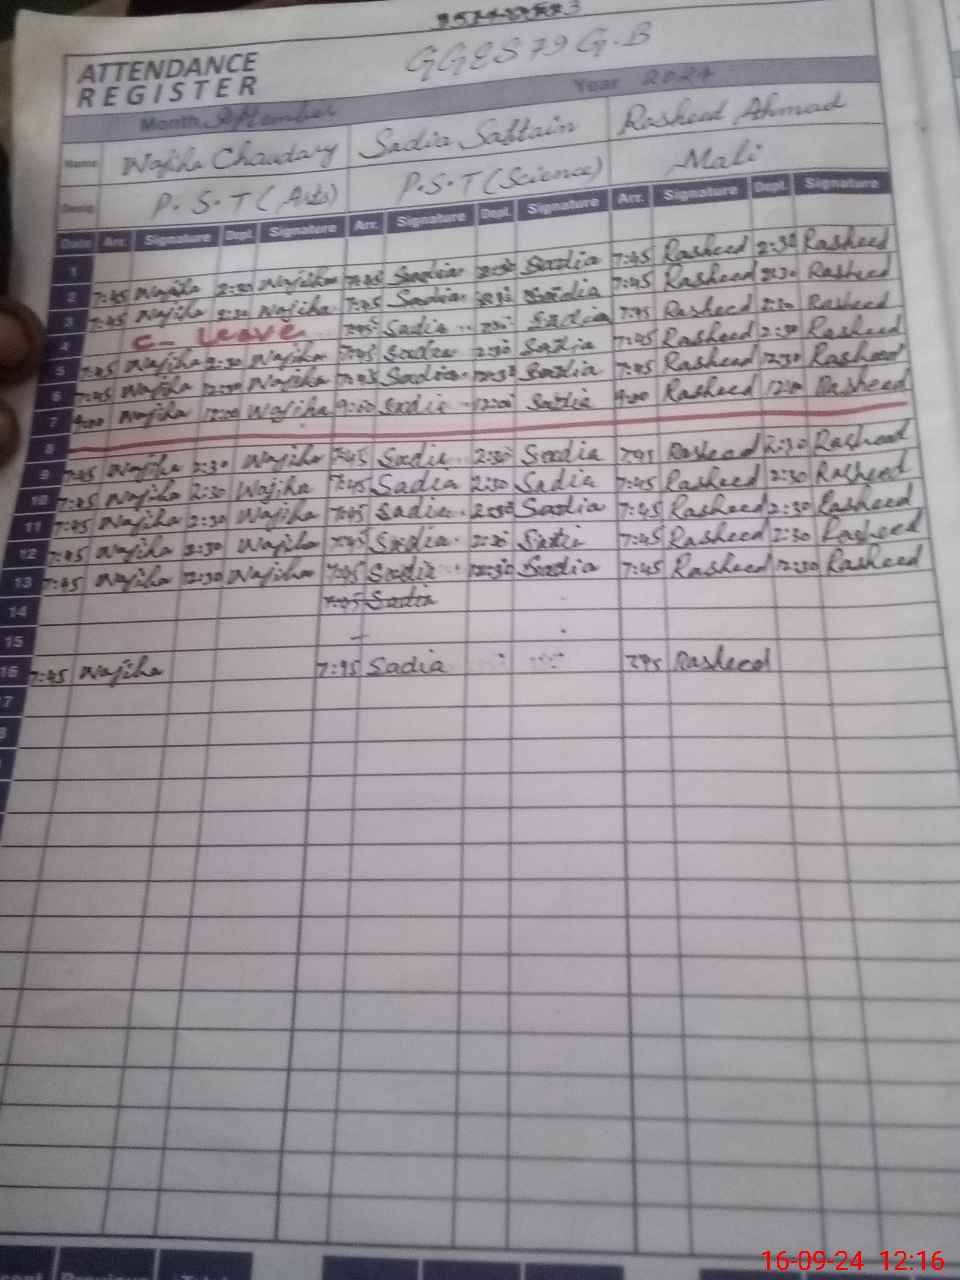 GGES 79 G.B
ATTENDANCE
REGISTER
Month September Year 2024
Name Wajiha Chaudary Sadia Sattain Rasheed Ahmad
Desig P.S.T (Arts) P.S.T (Science) Mali
Date Arr. Signature Dept. Signature Arr. Signature Dept. Signature Arr. Signature Dept. Signature
1
2 7:45 Wajiha 2:30 Wajiha 7:45 Sadia 2:30 Sadia 7:45 Rasheed 2:30 Rasheed
3 7:45 Wajiha 2:30 Wajiha 7:45 Sadia Sadia 7:45 Rasheed 2:30 Rasheed
4 C- Leave 7:45 Sadia Sadia 7:45 Rasheed 2:30 Rasheed
5 7:45 Wajiha 2:30 Wajiha 7:45 Sadia 2:30 Sadia 7:45 Rasheed 2:30 Rasheed
6 7:45 Wajiha 12:30 Wajiha 7:45 Sadia 12:30 Sadia 7:45 Rasheed 12:30 Rasheed
7 9:00 Wajiha 12:00 Wajiha 9:00 Sadia 12:00 Sadia 9:00 Rasheed 12:00 Rasheed
8
9 7:45 Wajiha 2:30 Wajiha 7:45 Sadia 2:30 Sadia 7:45 Rasheed 2:30 Rasheed
10 7:45 Wajiha 2:30 Wajiha 7:45 Sadia 2:30 Sadia 7:45 Rasheed 2:30 Rasheed
11 7:45 Wajiha 2:30 Wajiha 7:45 Sadia 2:30 Sadia 7:45 Rasheed 2:30 Rasheed
12 7:45 Wajiha 2:30 Wajiha 7:45 Sadia 2:30 Sadia 7:45 Rasheed 2:30 Rasheed
13 7:45 Wajiha 12:30 Wajiha 7:45 Sadia 12:30 Sadia 7:45 Rasheed 12:30 Rasheed
14 7:45 Sadia
15
16 7:45 Wajiha 7:45 Sadia 7:45 Rasheed
16-09-24 12:16